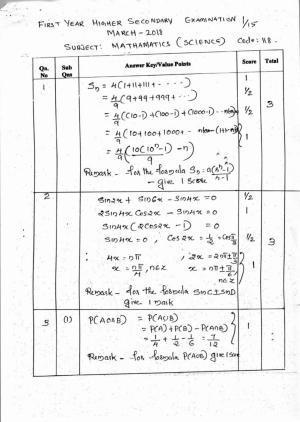 FIRST YEAR HIGHER SECONDARY EXAMINATION 1/15
MARCH-2018
SUBJECT: MATHAMATICS (SCIENCE) Code: 118.
Qn. No Sub Qns Answer Key/Value Points Score Total
1 Sn = 4(1+11+111+ - - - -) 1
= 4/9 (9+99+999+ ...) 1/2
= 4/9 ((10-1)+(100-1)+(1000-1)
= 4/9 (10+100+1000+ 1/2 3
= 4/9 (10(10^n-1)/9 - n) 1
Remark - for the formula Sn = a(r^n-1)/r-1
- give 1 score
2 sin2x + sin6x - sin4x = 0 1/2
2sin4x cos2x - sin4x = 0 1
sin4x (2cos2x - 1) = 0
sin4x = 0, cos2x = 1/2 = cos π/3 1/2 3
4x = nπ, 2x = 2nπ ± π/3
x = nπ/4, n∈Z x = nπ ± π/6, n∈Z 1
Remark - for the formula sinC + sinD
give 1 mark
3 (i) P(AorB) = P(A∪B)
= P(A)+P(B)-P(A∩B) 1
= 1/4 + 1/2 - 1/6 = 7/12
Remark - for formula P(A∪B) give 1 score